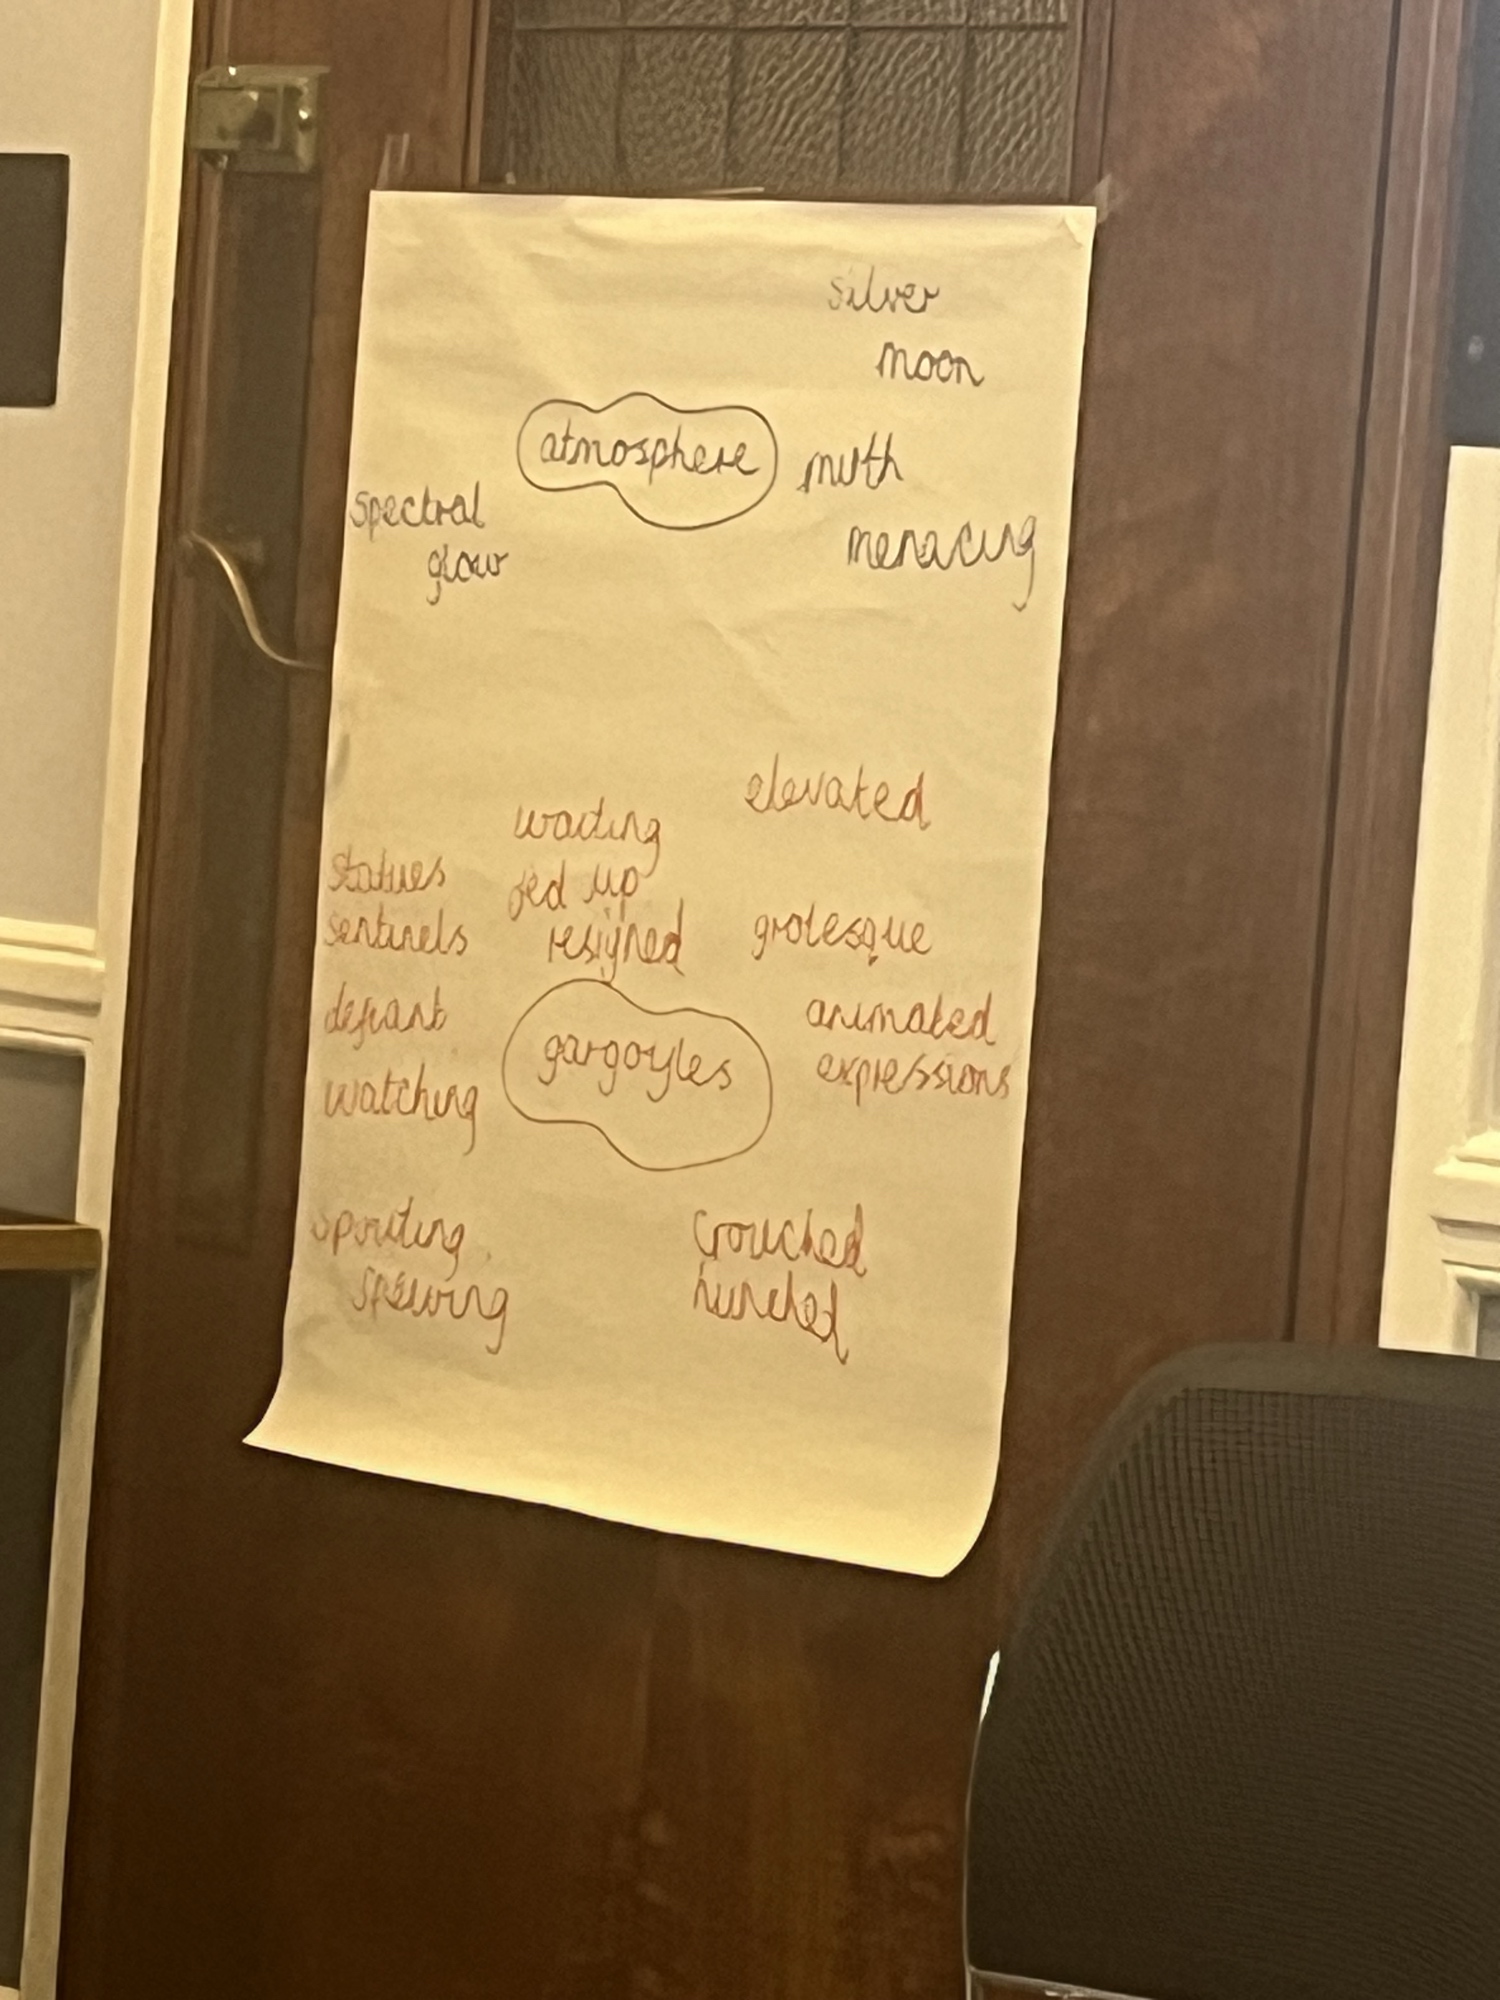 silver
moon
atmosphere
myth
spectral
glow
menacing
elevated
waiting
fed up
resigned
statues
sentinels
grotesque
defiant
watching
gargoyles
animated
expressions
spouting
spewing
crouched
hunched